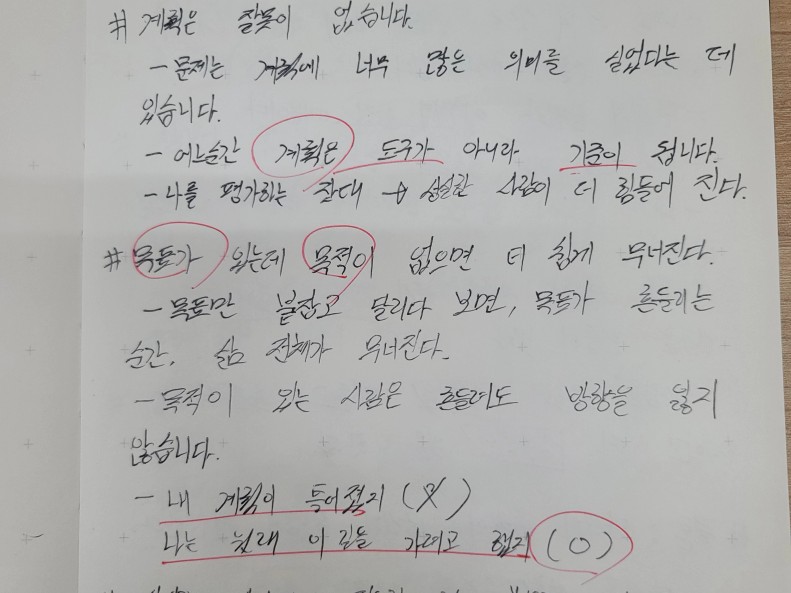 # 계획은 잘못이 없습니다.
- 문제는 계획에 너무 많은 의미를 실었다는 데
있습니다.
- 어느순간 계획은 도구가 아니라 기준이 됩니다.
- 나를 평가하는 잣대 → 성실한 사람이 더 힘들어 진다.
# 목표가 있는데 목적이 없으면 더 쉽게 무너진다.
- 목표만 붙잡고 달리다 보면, 목표가 흔들리는
순간, 삶 전체가 무너진다.
- 목적이 있는 사람은 흔들려도 방향을 잃지
않습니다.
- 내 계획이 틀어졌지 (X)
나는 원래 이 길을 가려고 했지 (O)